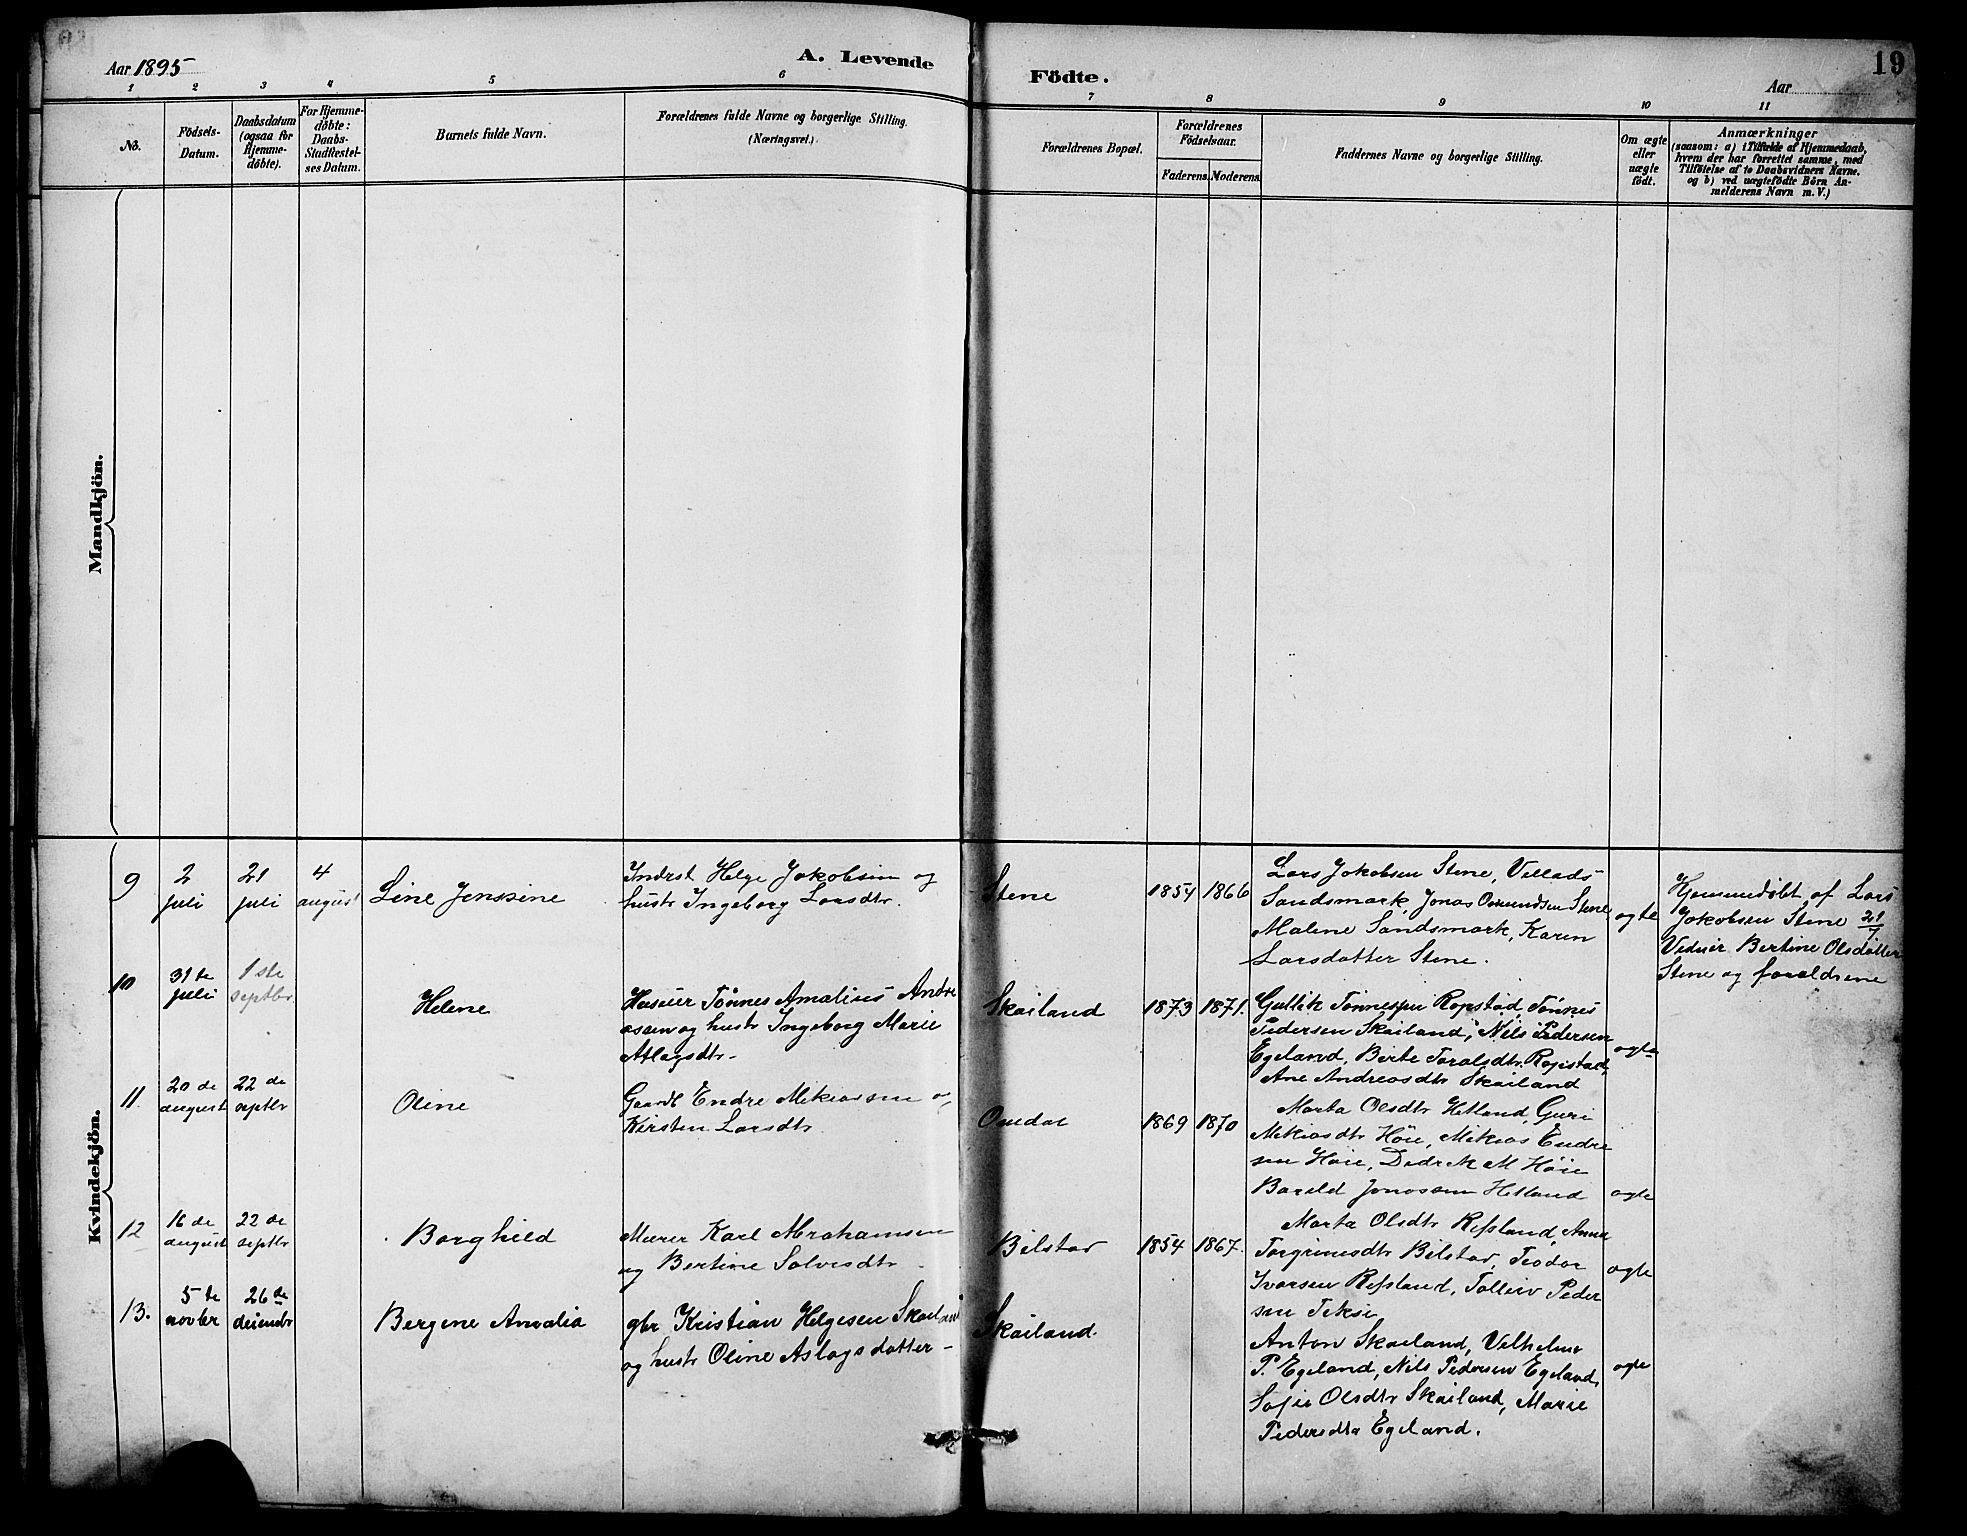 Aar 1895
A. Levende
Födte.
Aar
19
1 2 3 4 5 6 7 8 9 10 11
No.
Födsels-
Datum.
Daabsdatum
(ogsaa for
Hjemme-
döbte).
For Hjemme-
döbte:
Daabs-
Stadfæstel-
ses Datum.
Barnets fulde Navn.
Forældrenes fulde Navne og borgerlige Stilling.
(Næringsvei.)
Forældrenes Bopæl.
Forældrenes
Födselsaar.
Faderens. Moderens.
Faddernes Navne og borgerlige Stilling.
Om ægte
eller
uægte
födt.
Anmærkninger
(saasom: a) i Tilfælde af Hjemmedaab,
hvem der har forrettet samme, med
Tilföielse af to Daabsvidners Navne.
og b) ved uægtefödte Börn An-
melderens Navn m.V.)
Mandkjön.
Kvindekjön.
9
2
juli
21
juli
4
august
Line Jenssine
Inderst Helge Jakobsen og
hustr Ingeborg Larsdtr.
Stene
1854
1866
Lars Jakobsen Stene, Villads
Sandsmark, Jonas Osmundsen Stene
Malene Sandsmark, Karen
Larsdatter Stene.
ægte
Hjemmedøbt af Lars
Jakobsen Stene 21/7
Vidner Bertine Olsdatter
Stene og forældrene
10
31 te
juli
1 ste
septbr.
Helene
Huseier Tønnes Amalius Andre
asen og hustr Ingeborg Marie
Atlagsdtr
Skailand
1873
1871.
Gullik Tønnessen Ropstad, Tønnes
Pedersen Skailand, Nils Pedersen
Egeland, Berte Taralsdtr. Ropstad,
Ane Andreasdtr Skailand
ægte
11.
20 de
august
22 de
septbr
Oline
Gaardb Endre Mikiassen og
Kirsten Larsdtr
Omdal
1869
1870
Marta Olsdtr Hetland, Guri
Mikiasdtr Høie, Mikias Endre
sen Høie, Didrik M Høie
Bareld Jonassen Hetland
ægte
12
16 de
august
22 de
septbr
Borghild
Murer Karl Abrahamsen
og Bertine Solvesdtr
Bilstad
1854
1867.
Marta Olsdtr Refsland, Anna
Torgrimsdtr Bilstad, Teodor
Ivarsen Refsland, Tolleiv Peder
sen Tekse
ægte
13.
5 te
novbr
26 de
desembr
Bergine Amalia
gbr Kristian Helgesen Skailand
og hustr Oline Aslagsdatter
Skailand.
Anton Skailand, Vilhelm
P. Egeland, Nils Pedersen Egeland,
Sofie Olsdtr Skailand, Marie
Pedersdtr Egeland.
ægte